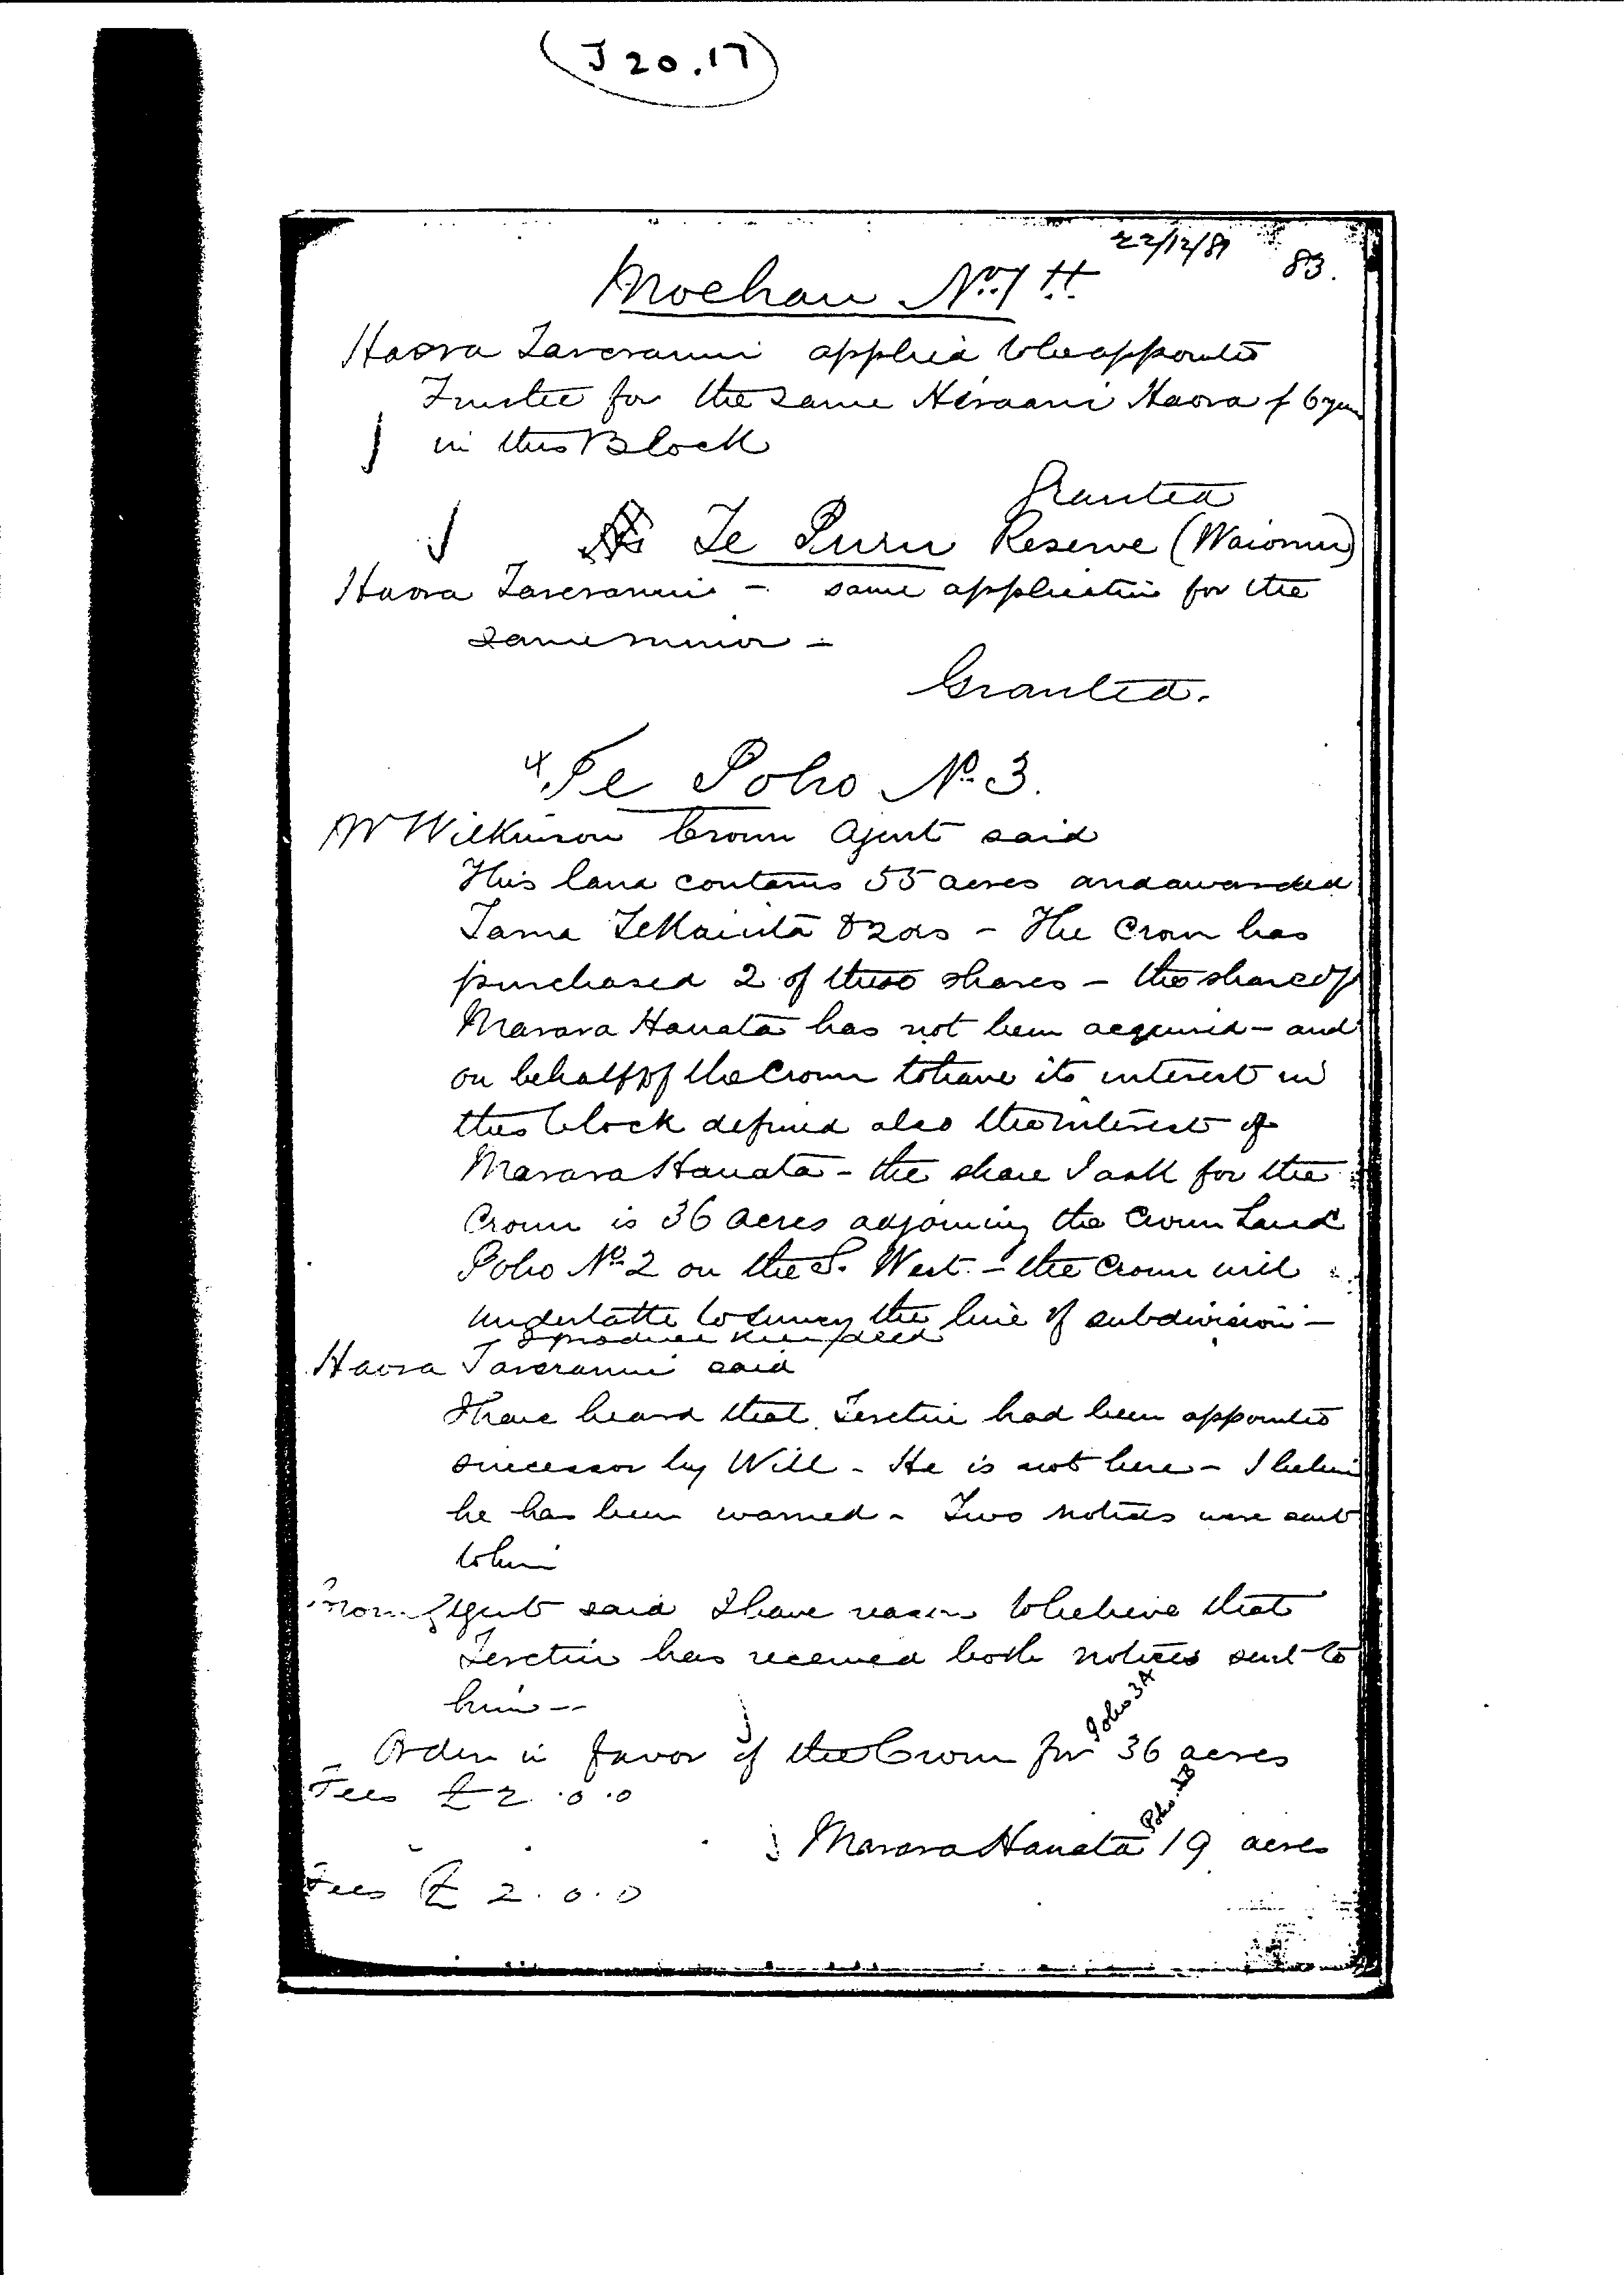 (J 20.17)
22/12/89 83.
Moehau No. 1 H.
Haora Tareranui applied to be appointed
Trustee for the same Hiraani Haora f 6 years
in this Block
Granted
Te Puru Reserve (Waiomu)
Haora Tareranui - same application for the
same minor -
Granted.
Te Poho No. 3.
Mr Wilkinson Crown Agent said
This land contains 55 acres and awarded
Tama & 2 ors - The Crown has
purchased 2 of these shares - the share of
Marara Hauata has not been acquired - and
on behalf of the Crown to have its interest in
this block defined also the interest of
Marara Hauata - the share I ask for the
Crown is 36 acres adjoining the Crown Land
Poho No. 2 on the S. West. - the Crown will
undertake to survey the line of subdivision -
I produce deed
Haora Tareranui said
I have heard that Teretiu had been appointed
successor by Will - He is not here - I believe
he has been warned - Two notices were sent
to him
Crown Agent said I have reason to believe that
Teretiu has received both notices sent to
him --
Poho 3A
Order in favor of the Crown for 36 acres
Fees £2.0.0
Poho 3B
Marara Hauata 19 acres
Fees £2.0.0